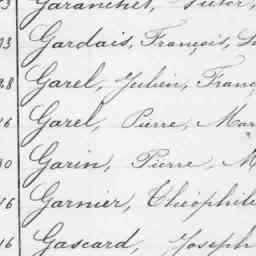 Garanchet, Victor,
93 Gardais, François,
28 Garel, Julien, Franç
16 Garel, Pierre, Mar
30 Garin, Pierre, M
16 Garnier, Théophile
16 Gascard, Joseph